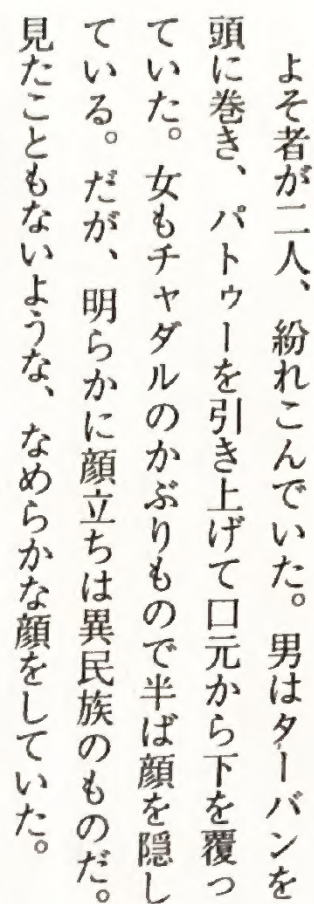 よそ者が二人、紛れこんでいた。男はターバンを
頭に巻き、パトゥーを引き上げて口元から下を覆っ
ていた。女もチャダルのかぶりもので半ば顔を隠し
ている。だが、明らかに顔立ちは異民族のものだ。
見たこともないような、なめらかな顔をしていた。